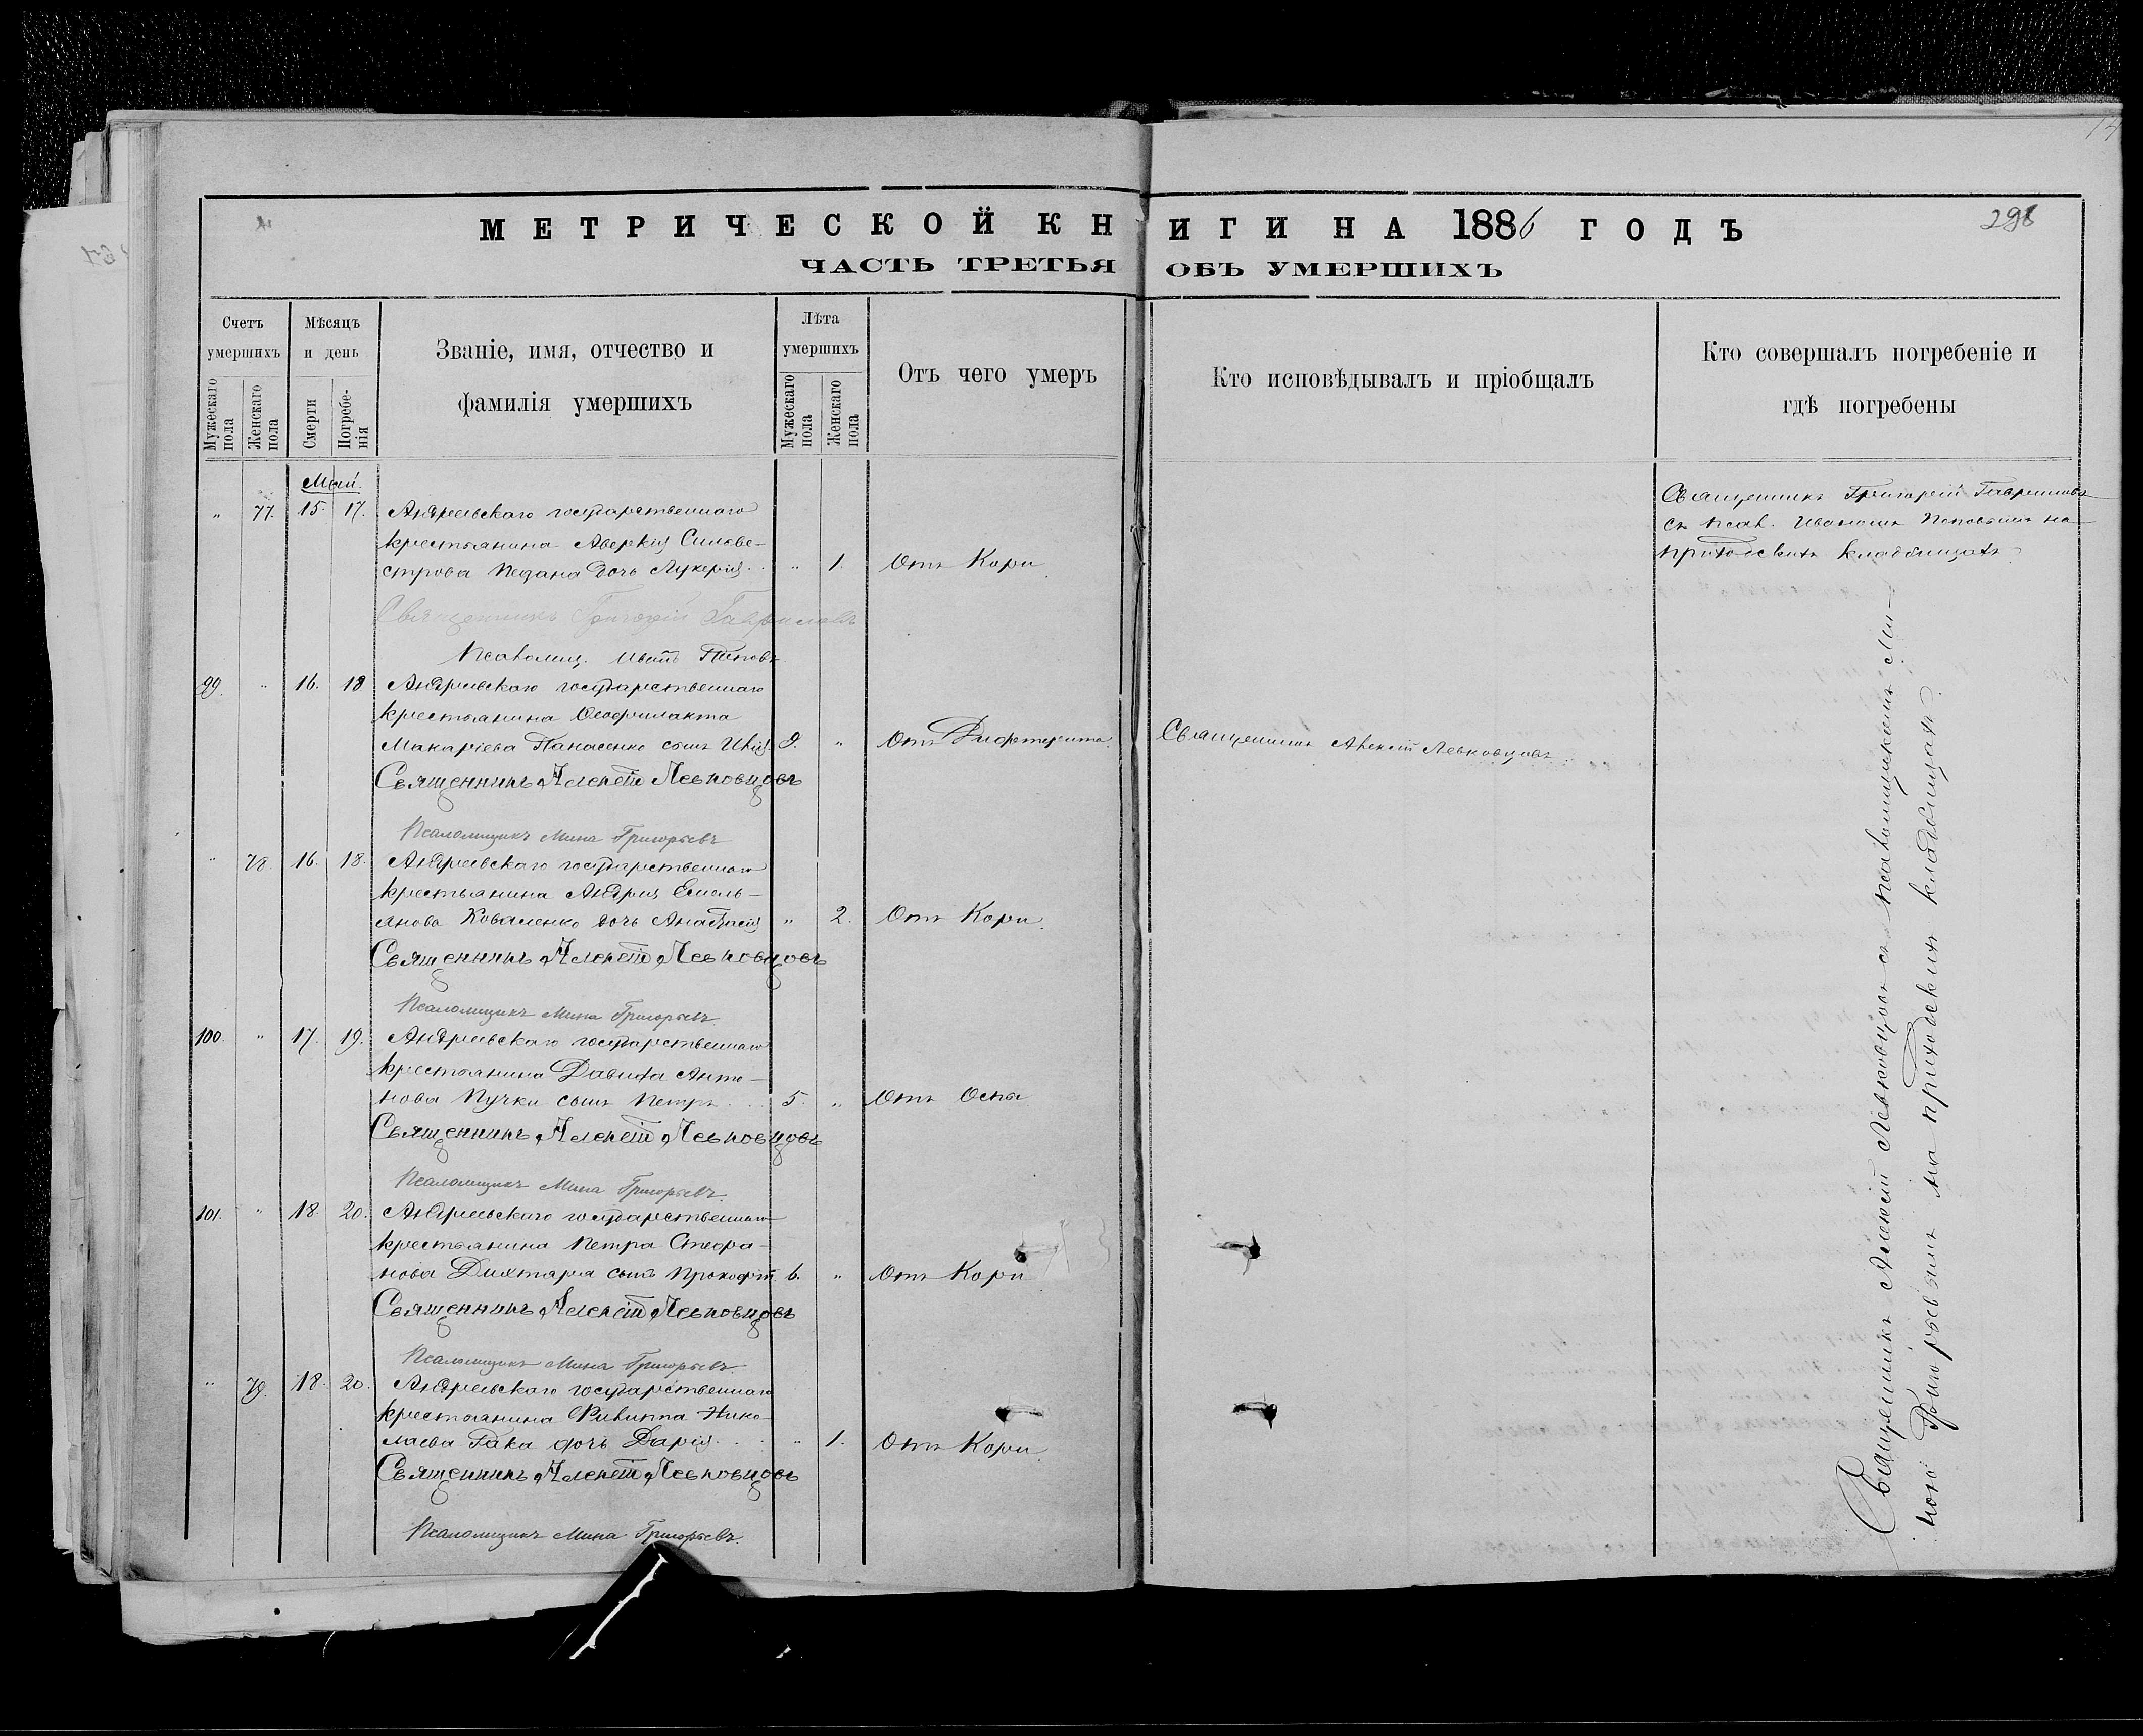 МЕТРИЧЕСКОЙ КНИГИ НА 1886 ГОДЪ
298
ЧАСТЬ ТРЕТЬЯ ОБЪ УМЕРШИХЪ
Счетъ умершихъ
Мужескаго пола
Женскаго пола
Мѣсяцъ и день
Смерти
Погребенія
Званіе, имя, отчество и
фамилія умершихъ
Лѣта умершихъ
Мужескаго пола
Женскаго пола
Отъ чего умеръ
Кто исповѣдывалъ и пріобщалъ
Кто совершалъ погребеніе и
гдѣ погребены
Май.
„ 77. 15. 17. Андреевскаго государственнаго
крестьянина Аверкія Сильве-
строва Педана дочь Лукерія „ 1. Отъ Кори
Священникъ Григорій Гавриловъ
съ псал. Иваномъ Поповымъ на
приходскихъ кладбищахъ
Священникъ Григорій Гавриловъ
Псаломщ. Иванъ Поповъ
99. „ 16. 18 Андреевскаго государственнаго
крестьянина Ѳеофилакта
Макаріева Панасенко сынъ „ Отъ Дифтерита. Священникъ Алексій Левковцовъ.
Священникъ Алексій Левковцовъ
Псаломщикъ Мина Григорьевъ
„ 78. 16. 18. Андреевскаго государственнаго
крестьянина Андрея Емель-
янова Коваленко дочь Анастасія „ 2. Отъ Кори.
Священникъ Алексій Левковцовъ
Псаломщикъ Мина Григорьевъ
100. „ 17. 19. Андреевскаго государственнаго
крестьянина Давида Анто-
нова Пучки сынъ Петръ 5. „ Отъ Оспы
Священникъ Алексій Левковцовъ
Псаломщикъ Мина Григорьевъ
101. „ 18. 20. Андреевскаго государственнаго
крестьянина Петра Стефа-
нова Дихтяря сынъ Прокофій 6. „ Отъ Кори
Священникъ Алексій Левковцовъ
Псаломщикъ Мина Григорьевъ
„ 79. 18. 20. Андреевскаго государственнаго
крестьянина Филиппа Нико-
лаева Гака дочь Дарія „ 1. Отъ Кори.
Священникъ Алексій Левковцовъ
Псаломщикъ Мина Григорьевъ.
Священникъ Алексій Левковцовъ съ псаломщикомъ Ми-
ною Григорьевымъ на приходскихъ кладбищахъ.